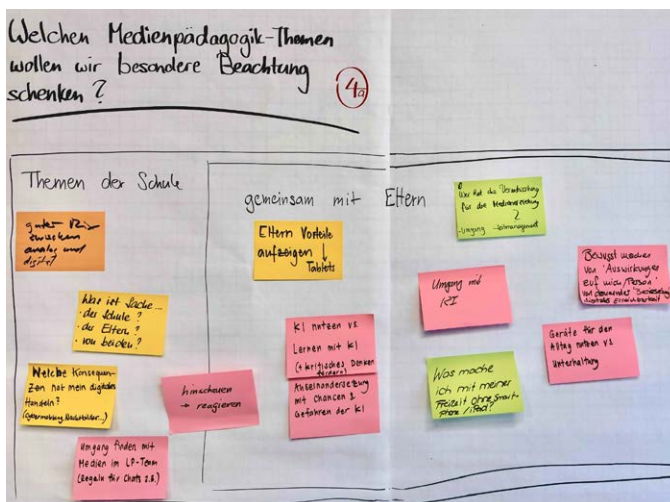 Welchen Medienpädagogik-Themen
wollen wir besondere Beachtung
schenken?
4a
Themen der Schule
gemeinsam mit Eltern
guter Mix
zwischen
analog und
digital
Was ist Sache...
· der Schule?
· der Eltern?
· von beiden?
Welche Konsequen-
zen hat mein digitales
Handeln?
(Cybermobbing, Nacktbilder...)
hinschauen
→ reagieren
Umgang finden mit
Medien im LP-Team
(Regeln für Chats z.B.)
Eltern Vorteile
aufzeigen ↓
Tablets
KI nutzen vs
Lernen mit KI
(+ kritisches Denken
fördern)
Auseinandersetzung
mit Chancen &
Gefahren der KI
Wer hat die Verantwortung
für die Medienerziehung
?
-Umgang -Zeitmanagement
Umgang mit
KI
Was mache
ich mit meiner
Freizeit ohne Smart-
phone / iPad?
Bewusst machen
von "Auswirkungen
auf mich/Person"
von dauernder
Geräte für den
Alltag nutzen vs
Unterhaltung